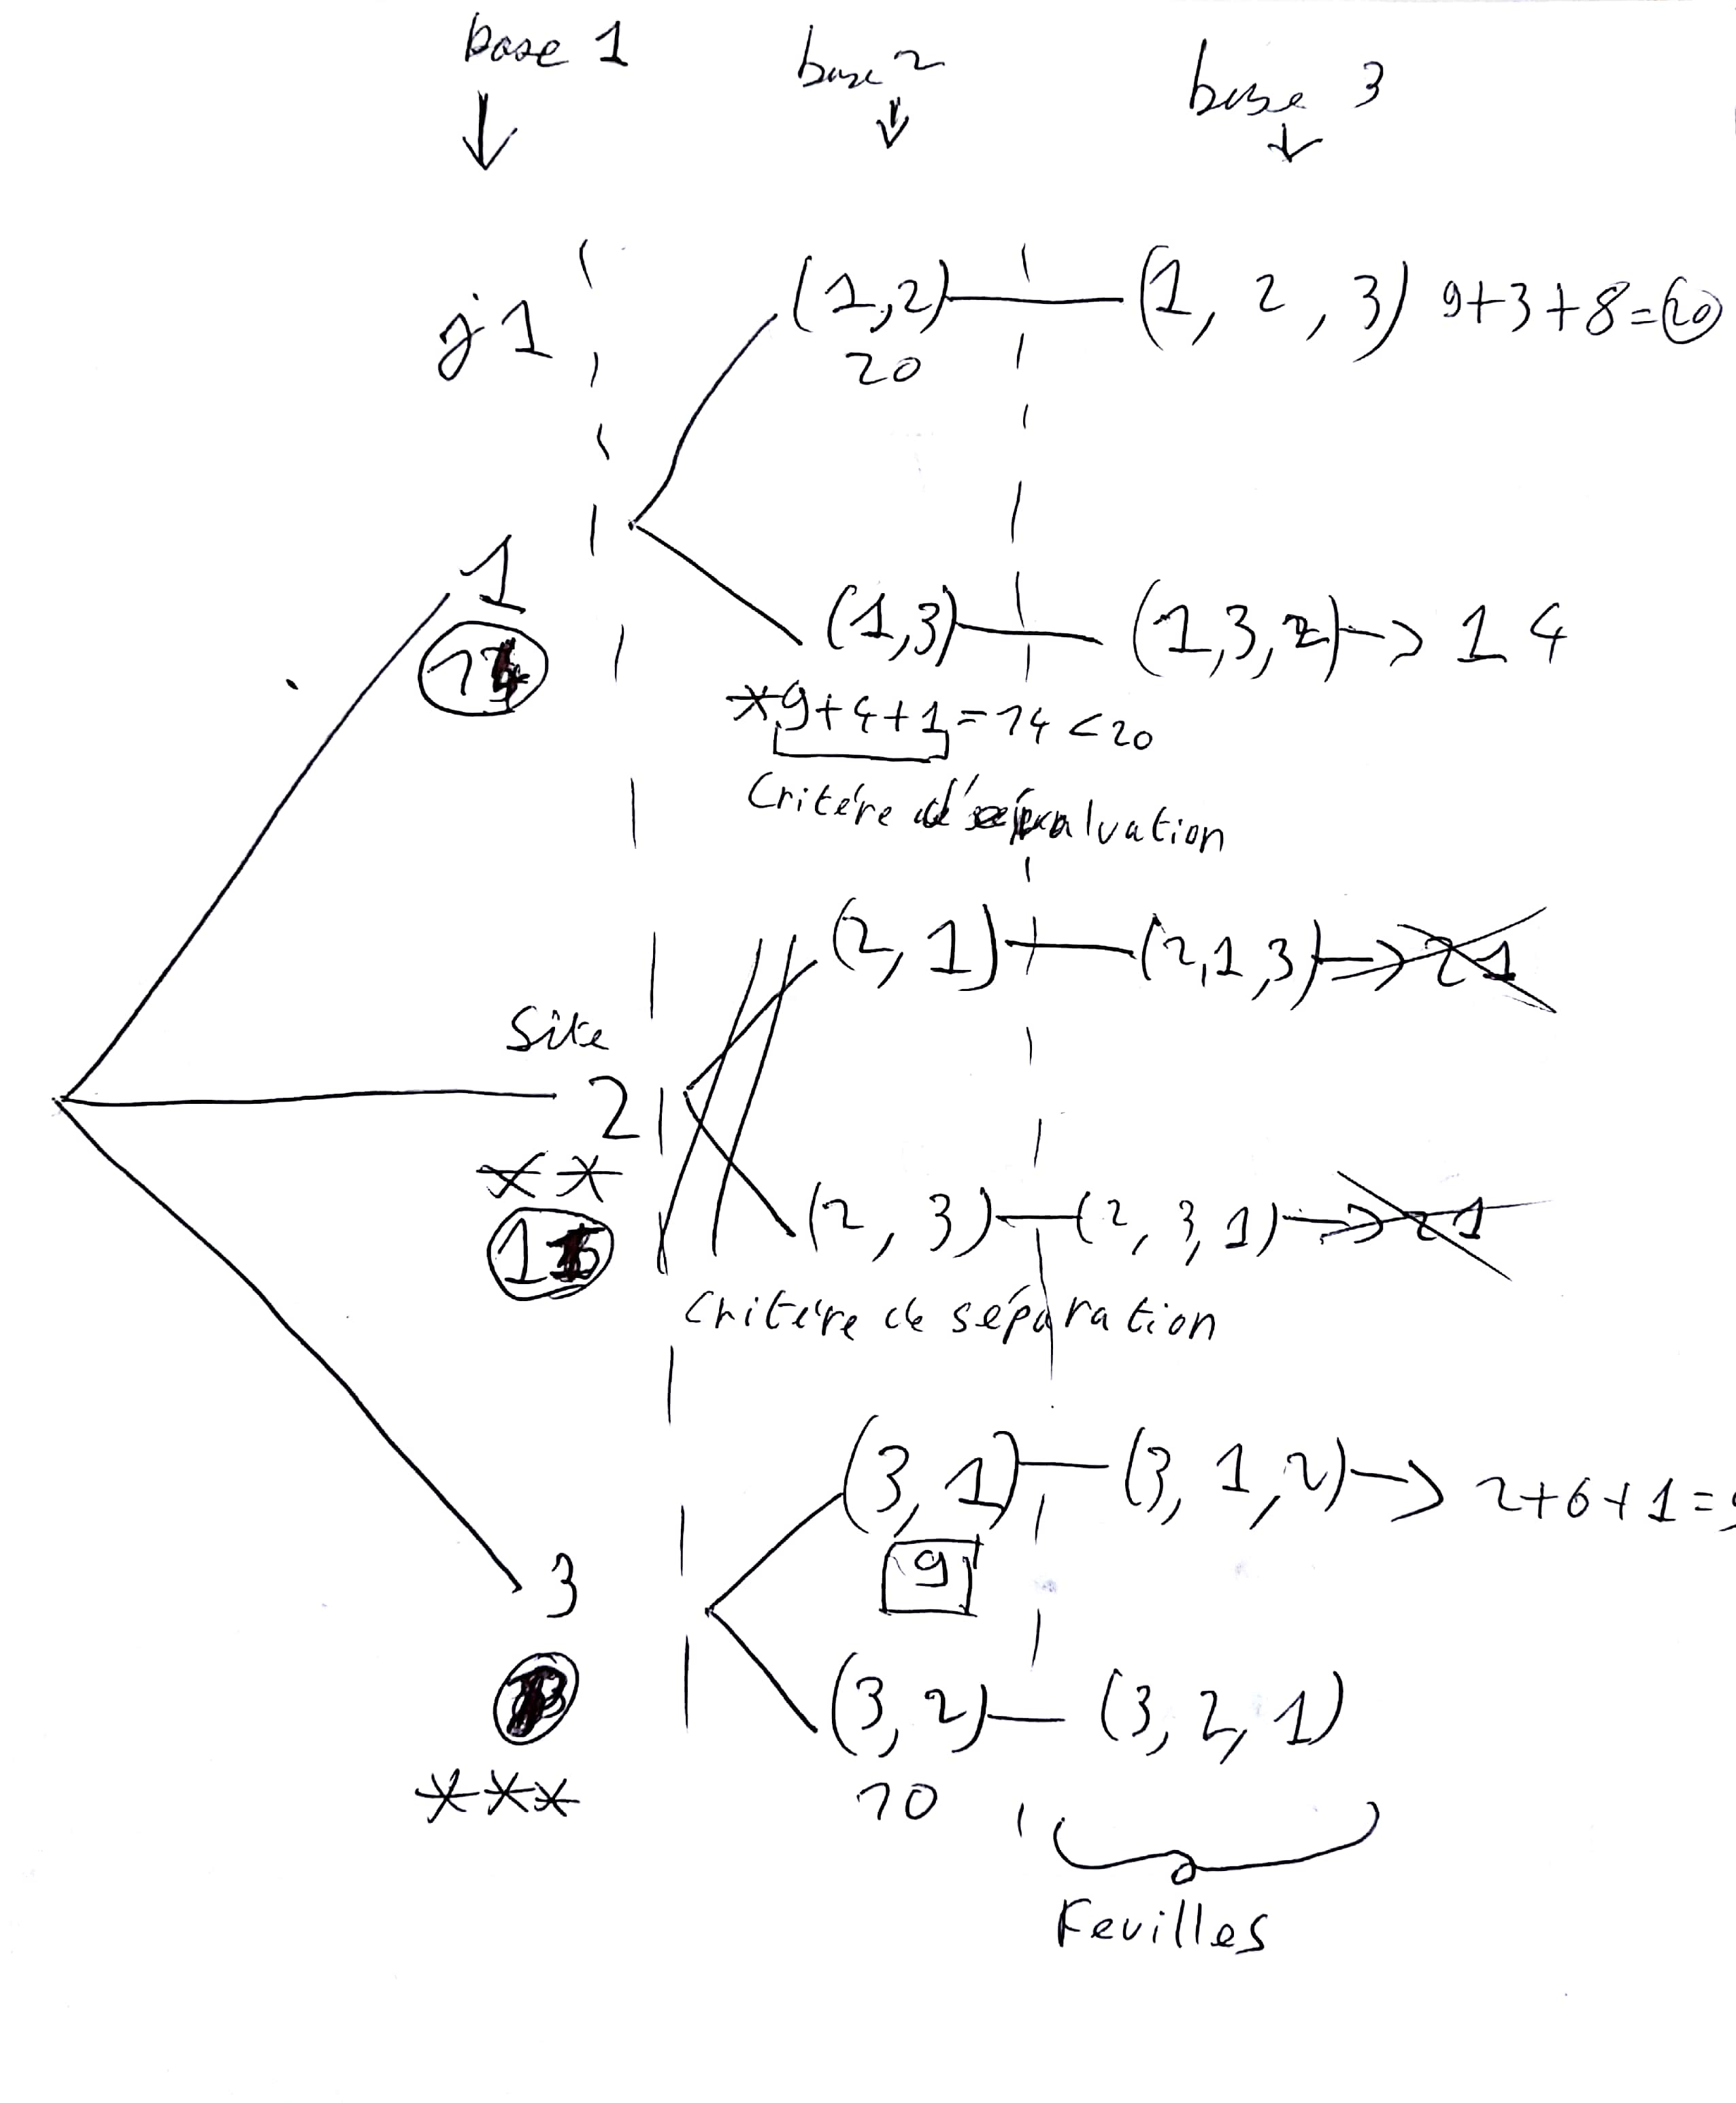 base 1
base 2
base 3
j1
(1,2)
(1, 2, 3) 9+3+8=20
20
1
(1,3)
(1,3,2) → 14
*9+4+1=14<20
Critère d'évaluation
(2, 1)
(2,1,3) → 21
Site
2
**
(2, 3)
(2, 3, 1) → 21
Critère de séparation
(3, 1)
(3, 1, 2) → 2+6+1=
9
3
(3, 2)
(3, 2, 1)
***
10
Feuilles